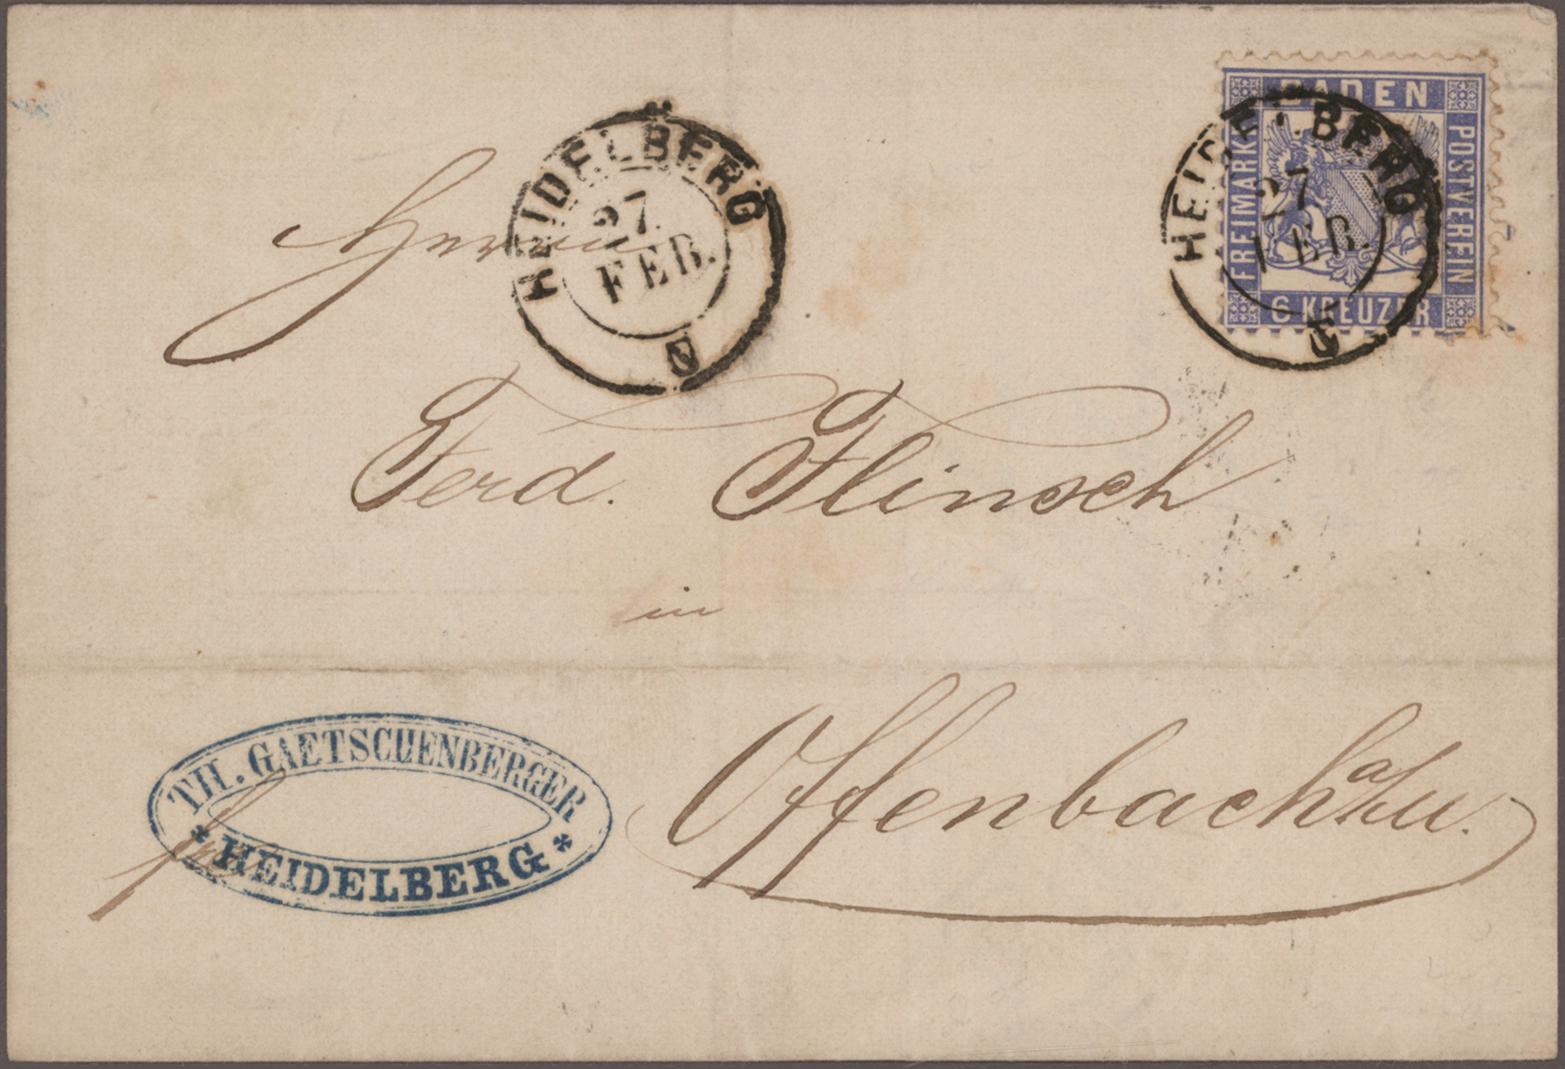 HEIDELBERG
27.
FEB.
BADEN
FREIMARKE
POSTVEREIN
6 KREUZER
HEIDELBERG
27
FEB.
Herrn
Ferd. Flinsch
in
Offenbach a/M.
TH. GAETSCHENBERGER
* HEIDELBERG *
fr